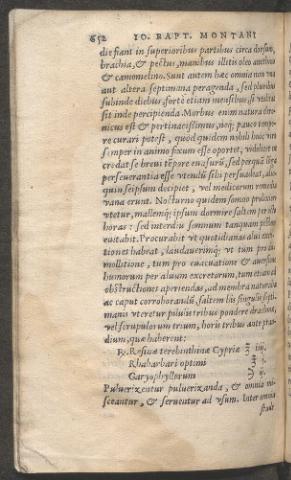 652 IO. BAPT. MONTANI
die fiant in superioribus partibus circa dorsum,
brachia, & pectus, manibus illitis oleo anethino
& camomelino. Sunt autem hæc omnia non una
aut altera septimana peragenda, sed pluribus
subinde diebus, fortè etiam mensibus, si utilitas
sit inde percipienda. Morbus enim natura chro
nicus est & pertinacissimus, neq; pauco tempo-
re curari potest, quòd quidem nobili huic uiro
semper in animo fixum esse oportet, uidelicet ne
credat se breui tempore euasurum, sed perquàm longa
perseuerantia esse utendum sibi persuadeat, alio-
quin seipsum decipiet, uel medicorum remedia
uana erunt. Nocturno quidem somno prolixiori
utetur, mallemq; ipsum dormire saltem per octo
horas: sed interdiu somnum tanquam pestem
euitabit. Procurabit ut quotidianas alui euacua
tiones habeat, laudauerimq; ut tum pro alui
mollitione, tum pro euacuatione & auersione
humorum per aluum excretorum, tum etiam ad
obstructiones aperiendas, ad membra naturalia
ac caput corroborandum, saltem bis singulis septi-
manis uteretur puluere tribus pondere drachmæ,
uel scrupulorum trium, horis tribus ante pran-
dium, quæ habent:
℞. Resinæ terebinthinæ Cypriæ ℥ iiij.
Rhabarbari optimi ℥ j.
Garyophyllorum ʒ ij.
Puluerizentur puluerizanda, & omnia mi-
sceantur, & seruentur ad usum. Inter omnia